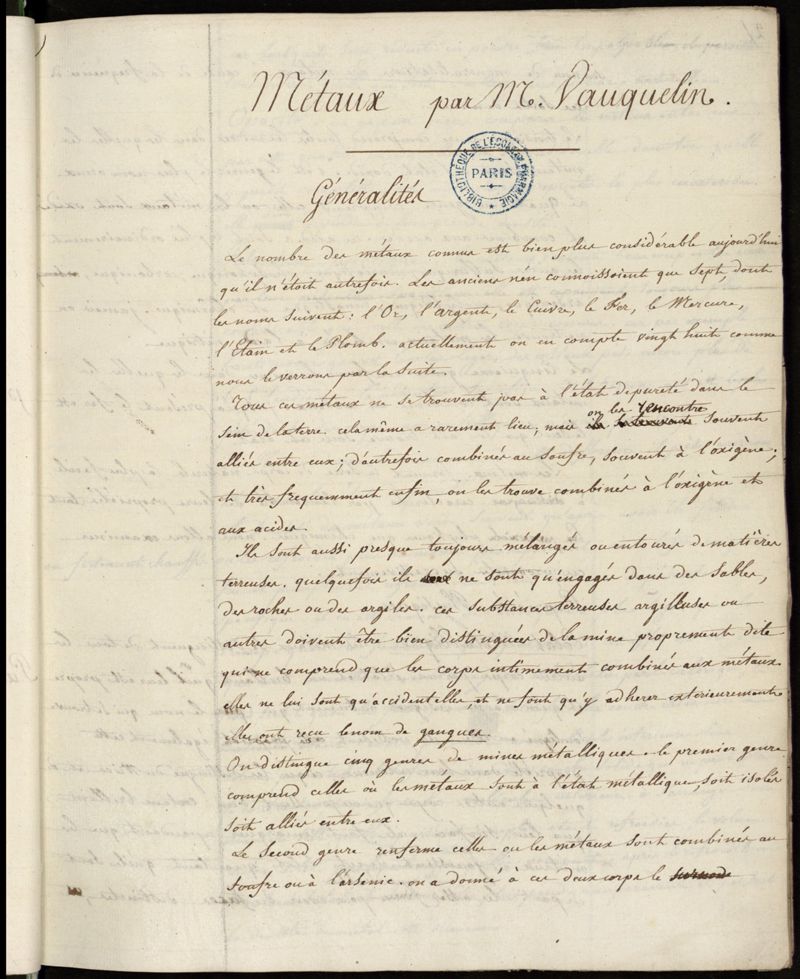 Métaux par M. Vauquelin.
BIBLIOTHÈQUE DE L'ÉCOLE DE PHARMACIE
PARIS
Généralités
Le nombre des métaux connus est bien plus considérable aujourd'hui
qu'il n'étoit autrefois. Les anciens n'en connoissoient que sept, dont
les noms suivent: l'Or, l'argent, le Cuivre, le Fer, le Mercure,
l'Etain et le Plomb. actuellement on en compte vingt huit comme
nous le verrons par la suite.
Tous ces métaux ne se trouvent pas à l'état de pureté dans le
sein de la terre. cela même a rarement lieu; mais on les rencontre souvent
alliés entre eux; d'autrefois combinés au soufre, souvent à l'oxigène;
et très frequemment enfin, on les trouve combinés à l'oxigène et
aux acides.
Ils sont aussi presque toujours mélangés ou entourés de matières
terreuses. quelquefois ils ne sont qu'engagés dans des sables,
des roches ou des argiles. ces substances terreuses argilleuses ou
autres doivent être bien distinguées de la mine proprement dite
qui ne comprend que les corps intimement combinés aux métaux.
elles ne lui sont qu'accidentelles, et ne font qu'y adherer exterieurement
elles ont recu le nom de gangues.
On distingue cinq genres de mines métalliques. le premier genre
comprend celles où les métaux sont à l'état métallique, soit isolés
soit alliés entre eux.
Le second genre renferme celles ou les métaux sont combinés au
soufre ou à l'arsenic. on a donné à ces deux corps le